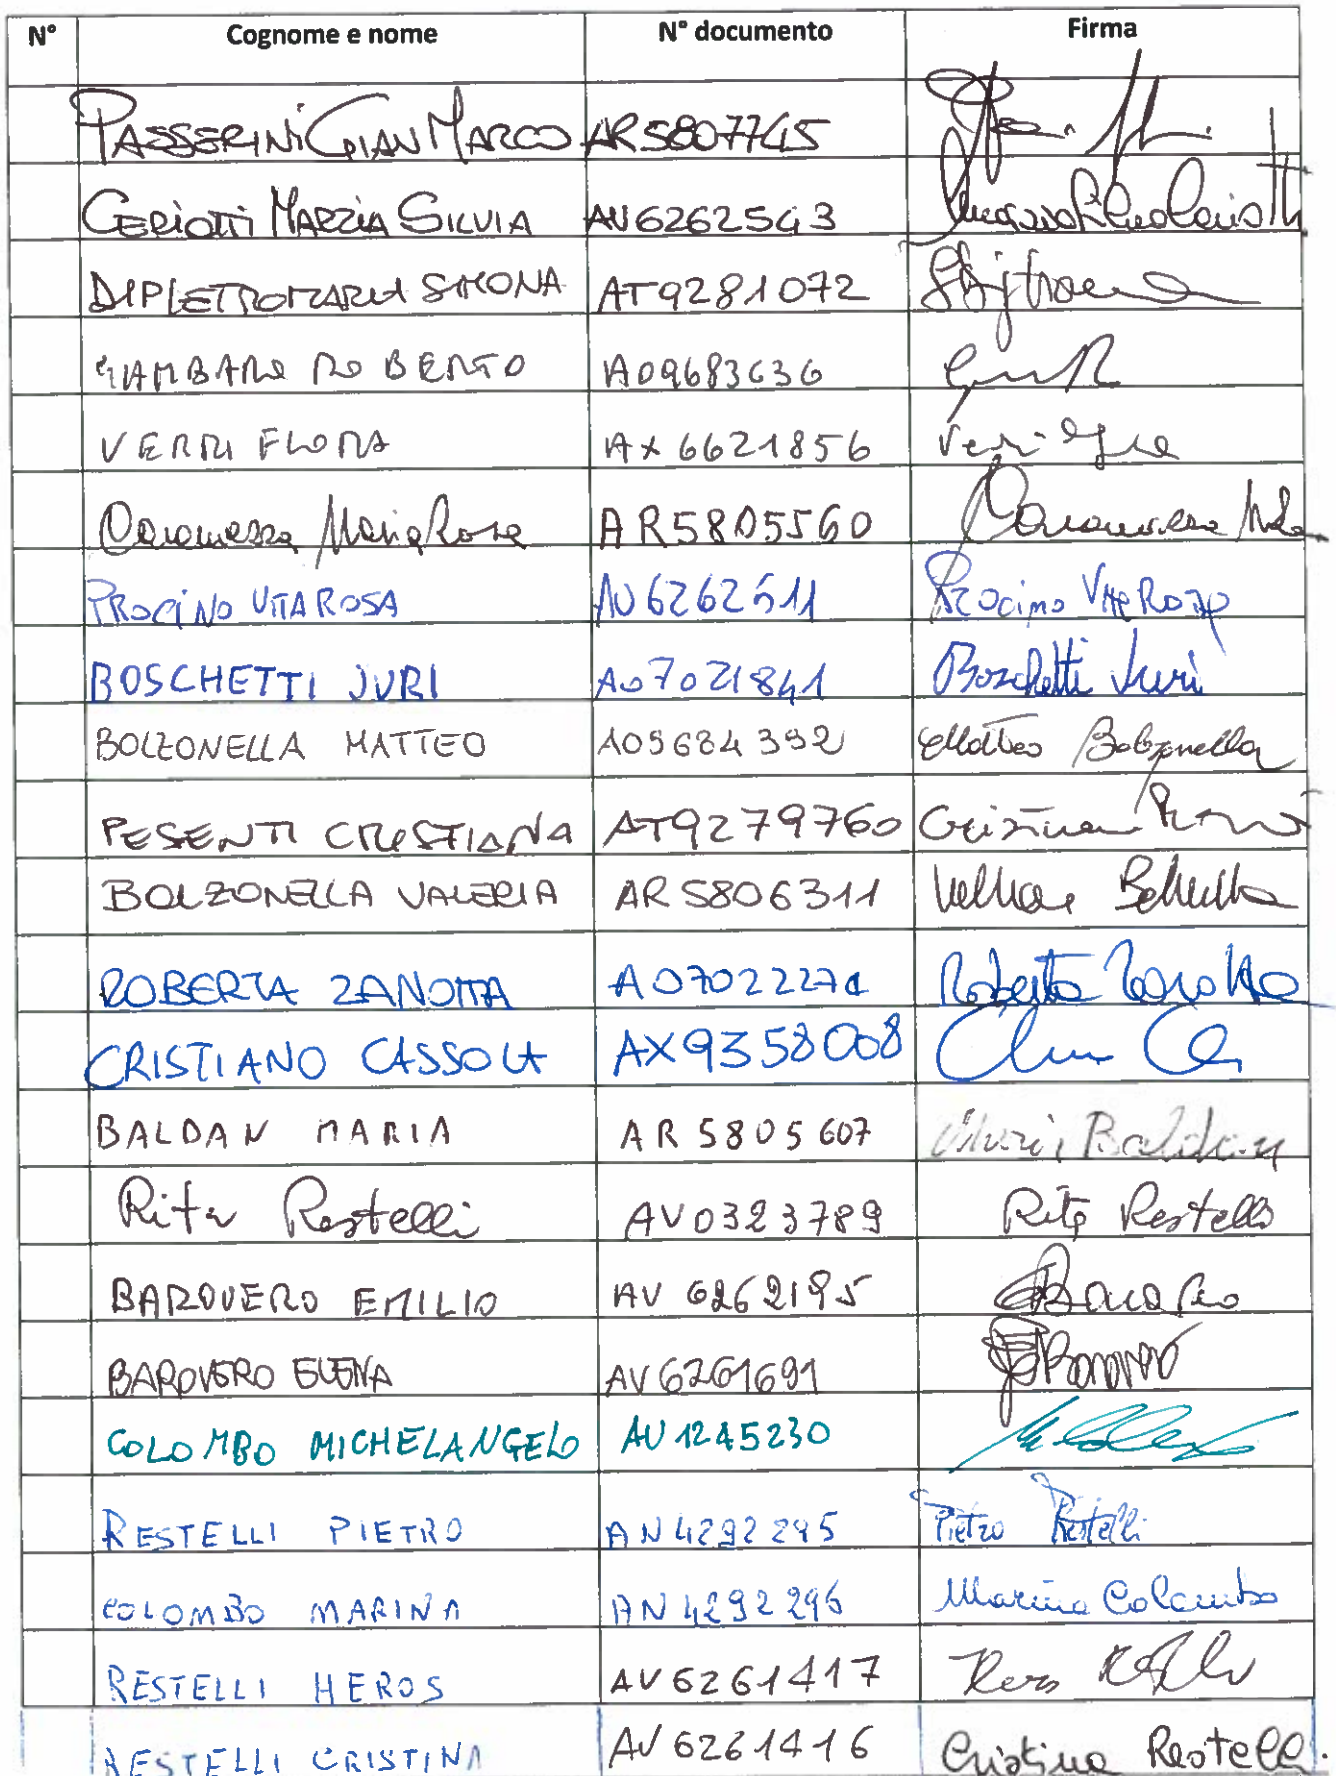 N° Cognome e nome N° documento Firma
PASSERINI GIAN MARCO AR5807745
CERIOTTI MARZIA SILVIA AV6262543
DIPIETROMARIA SIMONA AT9281072
GIAMBARO ROBERTO A09683636
VERRI FLORA AX 6621856 Verri Flora
Caramessa Maria Rosa AR5805560 Caramessa M.Rosa
PROCINO VITA ROSA AV6262511 Procino Vita Rosa
BOSCHETTI JURI A07021841 Boschetti Juri
BOLZONELLA MATTEO A09684392 Matteo Bolzonella
PESENTI CRISTIANA AT9279760 Cristiana Pesenti
BOLZONELLA VALERIA AR5806311
ROBERTA ZANOTTA A07022271 Roberta Zanotta
CRISTIANO CASSOLA AX9358008
BALDAN MARIA AR 5805607 Maria Baldan
Rita Restelli AV0323789 Rita Restelli
BAROVERO EMILIO AV 6262195
BAROVERO ELENA AV6261691
COLOMBO MICHELANGELO AU 1245230
RESTELLI PIETRO AN4292295 Pietro Restelli
COLOMBO MARINA AN4292296 Marina Colombo
RESTELLI HEROS AV6261417
RESTELLI CRISTINA AV6261416 Cristina Restelli